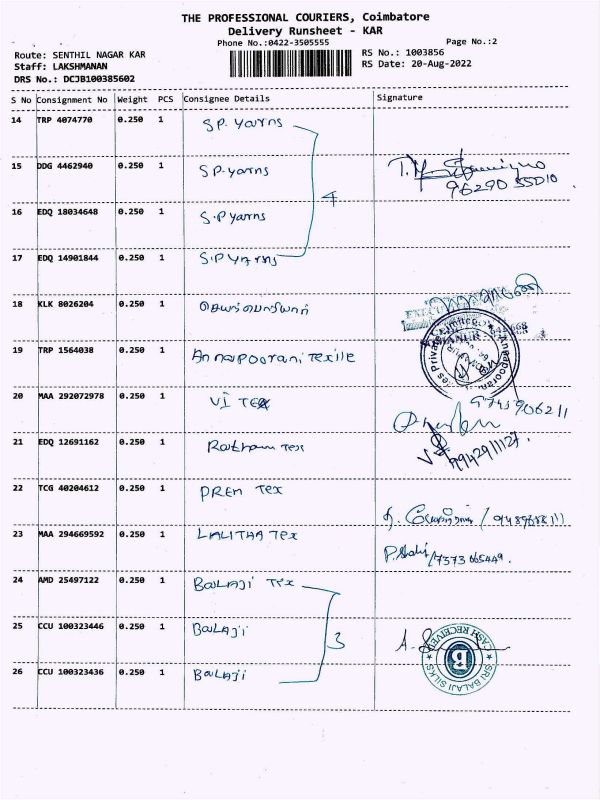 THE PROFESSIONAL COURIERS, Coimbatore
Delivery Runsheet - KAR
Phone No.:0422-3505555 Page No.:2
Route: SENTHIL NAGAR KAR RS No.: 1003856
Staff: LAKSHMANAN RS Date: 20-Aug-2022
DRS No.: DCJB100385602
S No Consignment No Weight PCS Consignee Details Signature
14 TRP 4074770 0.250 1 S.P. Yarns
15 DDG 4462940 0.250 1 S.P. Yarns
96290 55010
4
16 EDQ 18034648 0.250 1 S.P Yarns
17 EDQ 14901844 0.250 1 S.P Yarns
18 KLK 8026204 0.250 1
19 TRP 1564038 0.250 1 Annapoorani Texille
20 MAA 292072978 0.250 1 VI TEX
21 EDQ 12691162 0.250 1 Ratham Tex
9942911127
22 TCG 40204612 0.250 1 PREM TEX
23 MAA 294669592 0.250 1 LALITHA Tex
7373665449
24 AMD 25497122 0.250 1 BALAJI Tex
25 CCU 100323446 0.250 1 BALAJI
3
CASH RECEIVED
B
SRI BALAJI SILKS
26 CCU 100323436 0.250 1 BALAJI